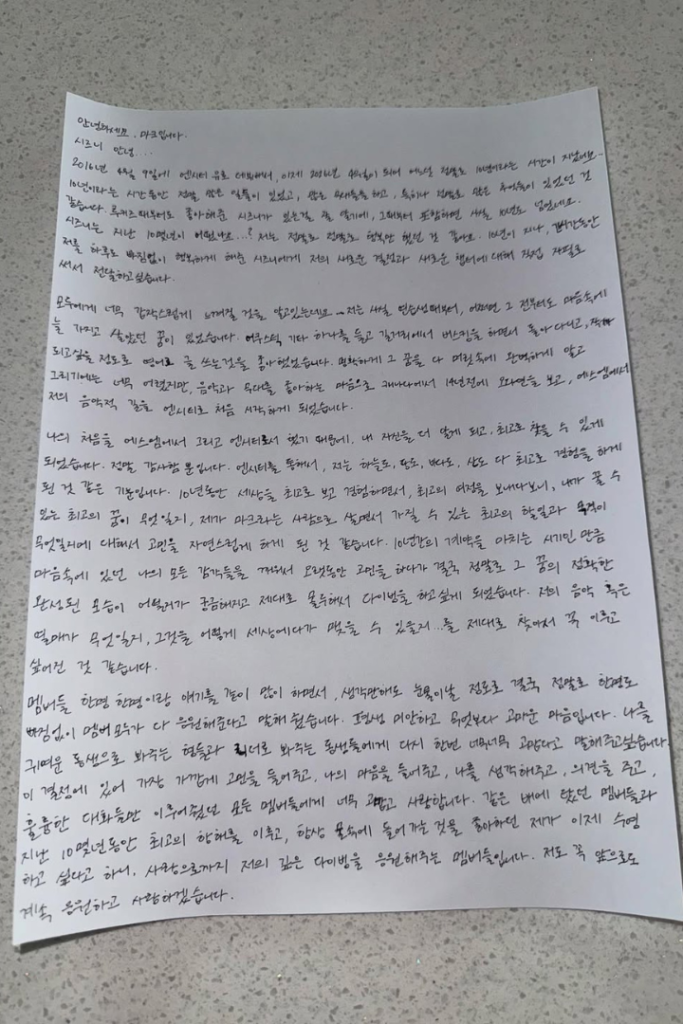 안녕하세요. 마크입니다.
시즈니 안녕....
2016년 4월 9일에 엔시티 유로 데뷔해서, 이제 2026년 4월이 되어 어느덧 정말로 10년이라는 시간이 지났네요..
10년이라는 시간동안 정말 많은 일들이 있었고, 많은 무대들을 하고, 특히나 정말로 많은 추억들이 있었던 것
같습니다. 루키즈 때부터도 좋아해준 시즈니가 있는걸 잘 알기에, 그때부터 포함하면 사실 10년도 넘었네요.
시즈니는 지난 10몇년이 어땠나요...? 저는 정말로 정말로 행복만 했던 것 같아요. 10년이 지나, 동안
저를 하루도 빠짐없이 행복하게 해준 시즈니에게 저의 새로운 결정과 새로운 챕터에 대해 직접 자필로
써서 전달하고 싶습니다.
모두에게 너무 갑작스럽게 느껴질 것을 알고있는데요.. 저는 사실 연습생때부터, 어쩌면 그 전부터도 마음속에
늘 가지고 살았던 꿈이 있었습니다. 어쿠스틱 기타 하나를 들고 길거리에서 버스킹을 하면서 돌아다니고,
되고싶을 정도로 영어로 글 쓰는것을 좋아했었습니다. 그 꿈을 다 머릿속에 완벽하게 알고
그리기에는 너무 어렸지만, 음악과 무대를 좋아하는 마음으로 캐나다에서 14년전에 오디션을 보고, 에스엠에서
저의 음악적 길을 엔시티로 처음 시작하게 되었습니다.
나의 처음을 에스엠에서 그리고 엔시티로서 했기 때문에, 내 자신을 더 알게 되고, 최고로 찾을 수 있게
되었습니다. 정말 감사할 뿐입니다. 엔시티를 통해서, 저는 하늘도, 땅도, 바다도, 산도 다 최고로 경험을 하게
된 것 같은 기분입니다. 10년동안 세상을 최고로 보고 경험하면서, 최고의 여정을 보내다보니, 내가 꿀 수
있는 최고의 꿈이 무엇일지, 제가 마크라는 사람으로 살면서 가질 수 있는 최고의 할일과 목적이
무엇일지에 대해서 고민을 자연스럽게 하게 된 것 같습니다. 10년간의 계약을 마치는 시기인 만큼
마음속에 있던 나의 모든 감각들을 깨워서 오랫동안 고민을 하다가 결국 정말로 그 꿈의 정확한
완성된 모습이 어떨런가 궁금해지고 제대로 몰두해서 다이빙을 하고싶게 되었습니다. 저의 음악 혹은
열매가 무엇일지, 그것을 어떻게 세상에다가 맺을 수 있을지...를 제대로 찾아서 꼭 이루고
싶어진 것 같습니다.
멤버들 한명 한명이랑 얘기를 같이 많이 하면서, 생각만해도 눈물이날 정도로 결국 정말로 한명도
빠짐없이 멤버 모두가 다 응원해준다고 말해 줬습니다. 평생 미안하고 무엇보다 고마운 마음입니다. 나를
귀여운 동생으로 봐주는 형들과 리더로 봐주는 동생들에게 다시 한번 너무너무 고맙다고 말해주고싶습니다.
이 결정에 있어 가장 가깝게 고민을 들어주고, 나의 마음을 들어주고, 나를 생각해주고, 의견을 주고,
훌륭한 대화들만 이루어줬던 모든 멤버들에게 너무 고맙고 사랑합니다. 같은 배에 탔던 멤버들과
지난 10몇년동안 최고의 항해를 이루고, 항상 물속에 들어가는 것을 좋아하던 제가 이제 수영
하고 싶다고 하니, 사랑으로까지 저의 깊은 다이빙을 응원해주는 멤버들입니다. 저도 꼭 앞으로도
계속 응원하고 사랑하겠습니다.